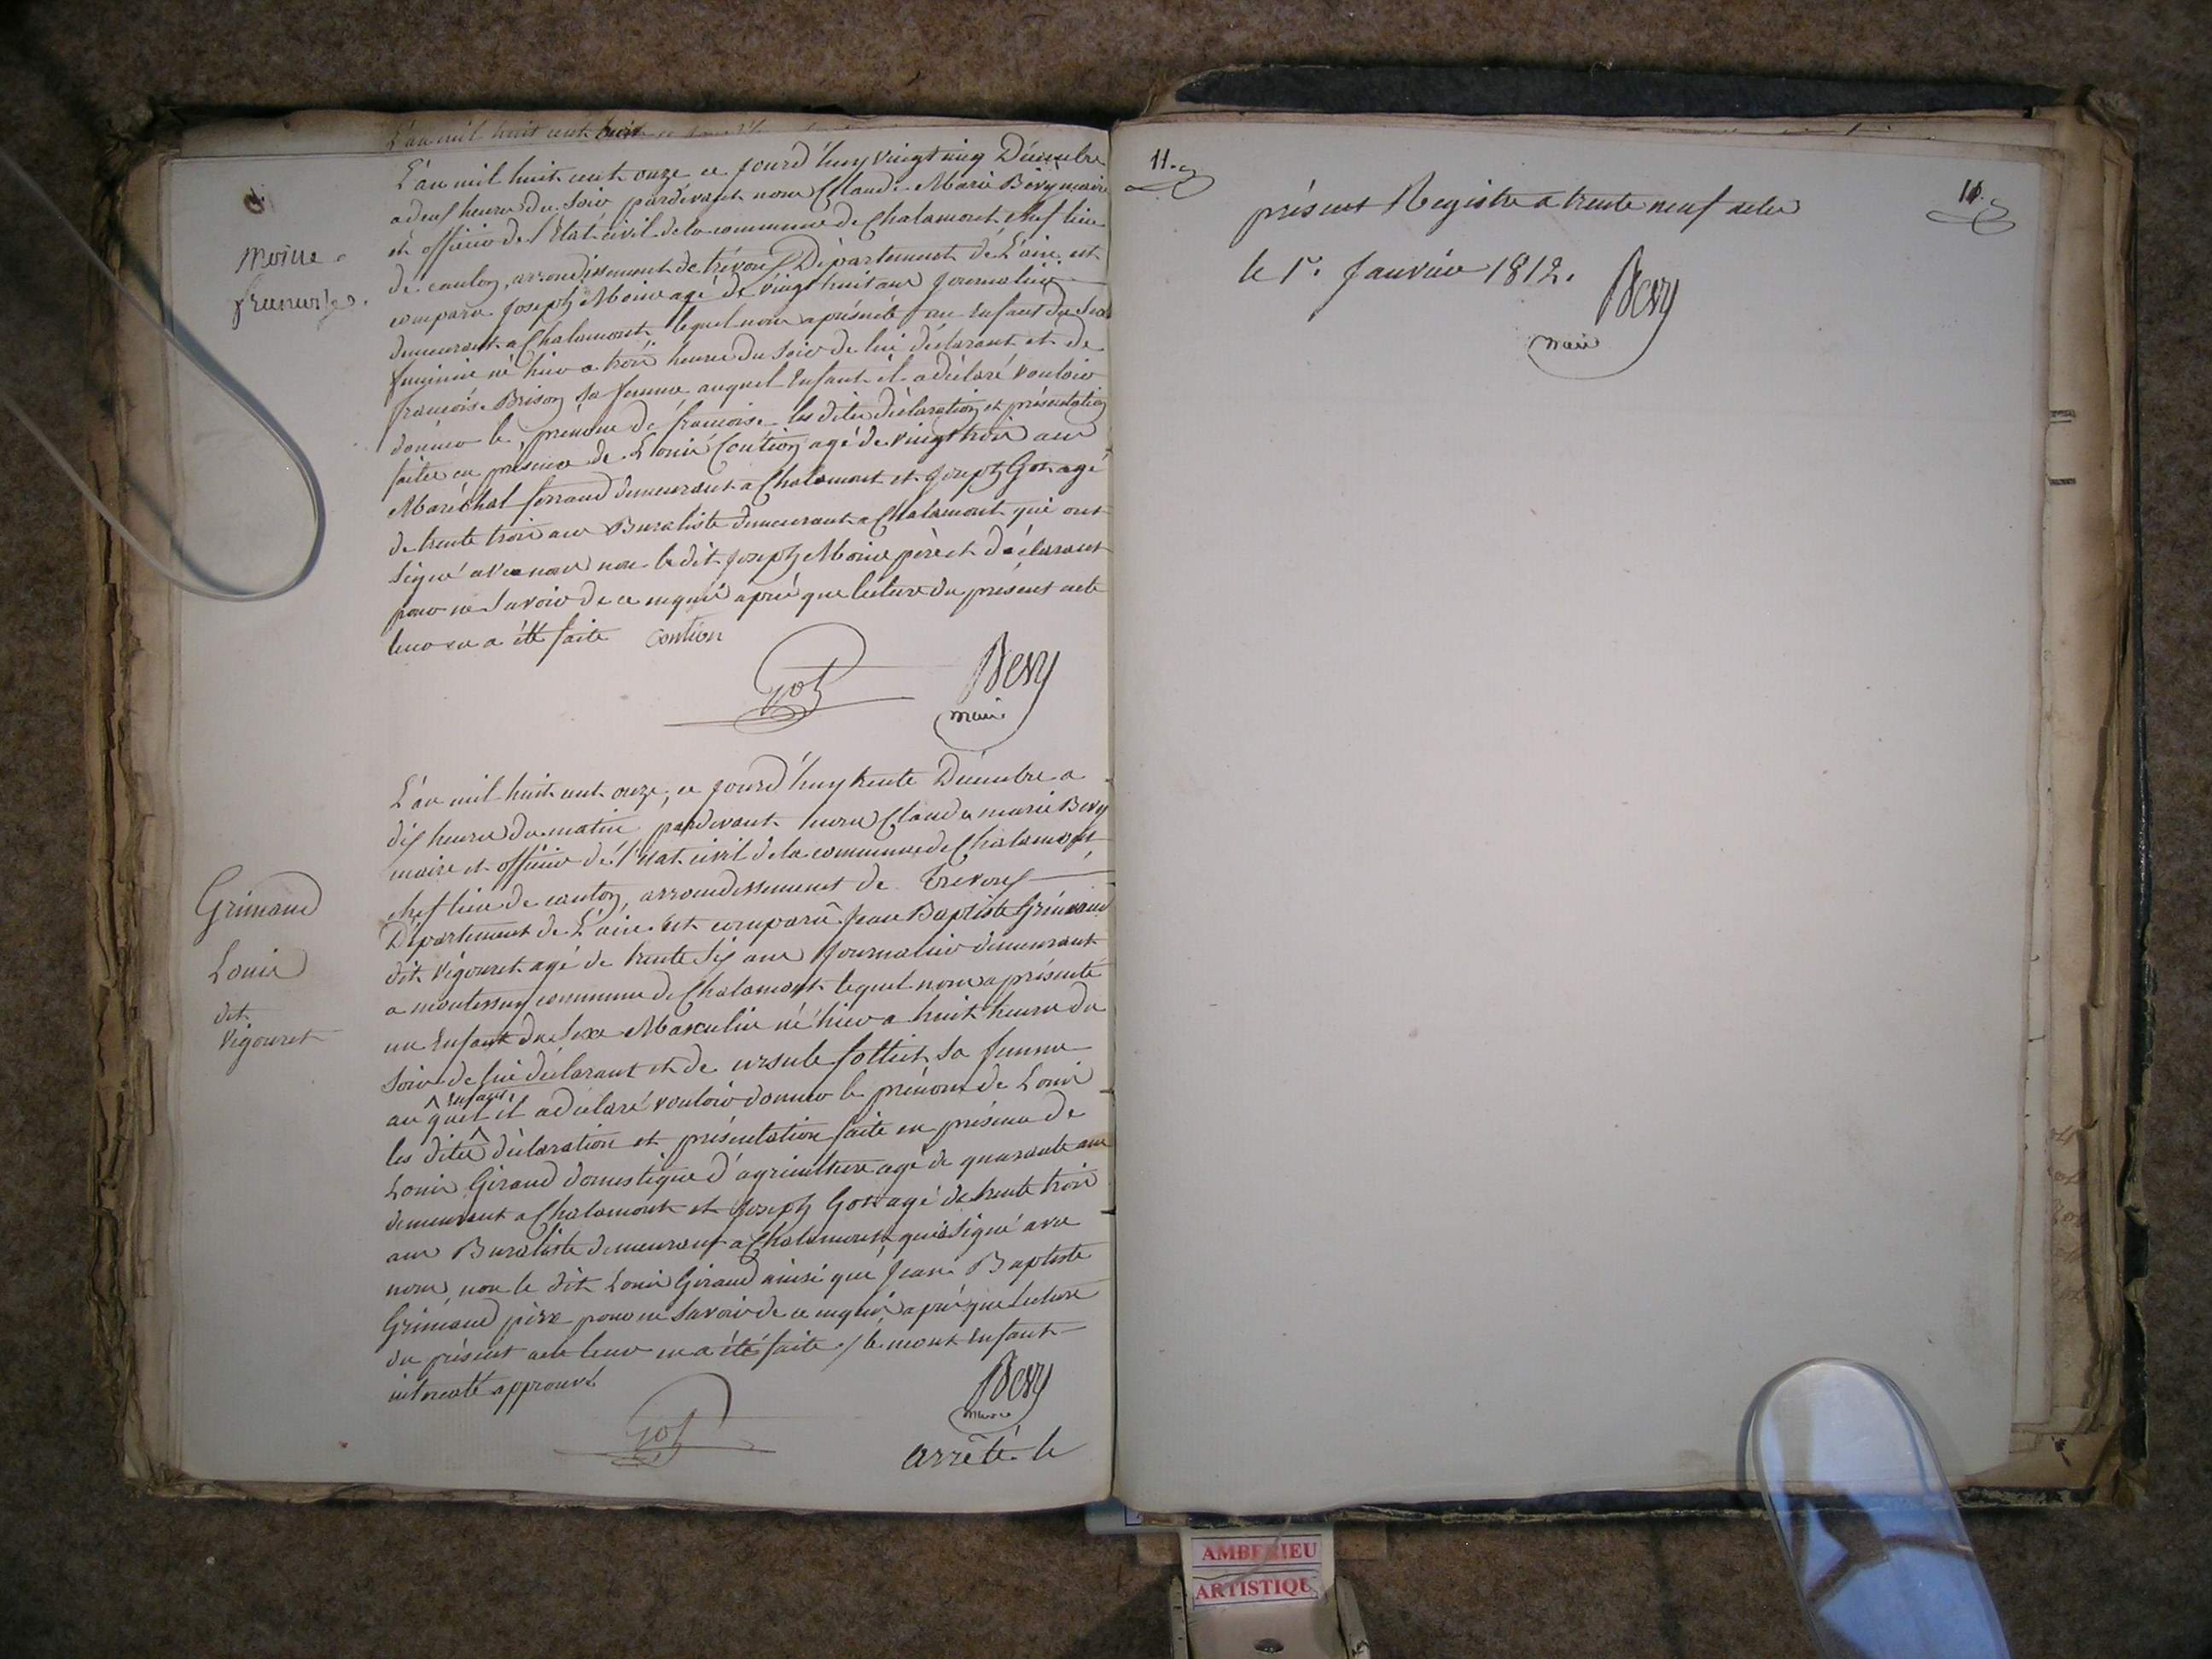 L'an mil huit cent
L'an mil huit cent onze ce jourd'huy vingt cinq Décembre
a deux heures du soir pardevant nous Claude Marie Bévy maire
et officier de l'Etat civil de la commune de Chalamont chef lieu
de canton, arrondissement de trévoux Département de L'ain est
comparu Joseph Moine agé de vingt huit ans Journalier
demeurant a Chalamont lequel nous a présenté un Enfant du Sexe
feminin né hier a trois heures du soir de lui déclarant et de
francoise Brison sa femme auquel Enfant il a déclaré vouloir
donner le prénom de francoise les dites déclaration et présentation
faites en présence de Louis Contion agé de vingt trois ans
Maréchal ferrand demeurant a Chalamont et Joseph Got agé
de trente trois ans Buraliste demeurant a Chalamont qui ont
signé avec nous non le dit Joseph Moine père et déclarant
pour ne savoir de ce enquis après que lecture du présent acte
leur en a été faite Contion
Moine
francoise
Got
Bevy
maire
L'an mil huit cent onze, ce jourd'huy trente Décembre a
dix heures du matin pardevant nous Claude marie Bevy
maire et officier de l'Etat civil de la commune de Chalamont
chef lieu de canton, arrondissement de Trevoux
Département de L'ain est comparû Jean Baptiste Grimaud
dit Vigouret agé de trente six ans Journalier demeurant
a montessuy commune de Chalamont lequel nous a présenté
un Enfant du Sexe Masculin né hier a huit heures du
soir de lui déclarant et de ursule sa femme
au quel enfant il a déclaré vouloir donner le prénom de Louis
les dites déclaration et présentation faite en présence de
Louis Giraud domestique d'agriculture agé de quarante ans
demeurant a Chalamont et Joseph Got agé de trente trois
ans Buraliste demeurant a Chalamont qui a signé avec
nous, non le dit Louis Giraud ainsi que Jean Baptiste
Grimaud père pour ne savoir de ce enquis, après que lecture
du présent acte leur en a été faite / le mout Enfant
interealté approuvé
Grimaud
Louis
dit
Vigouret
Got
Bevy
maire
arrêté le
11.
11.
présent Registre a trente neuf actes
le 1r. Janvier 1812.
Bevy
maire
AMBERIEU
ARTISTIQUE